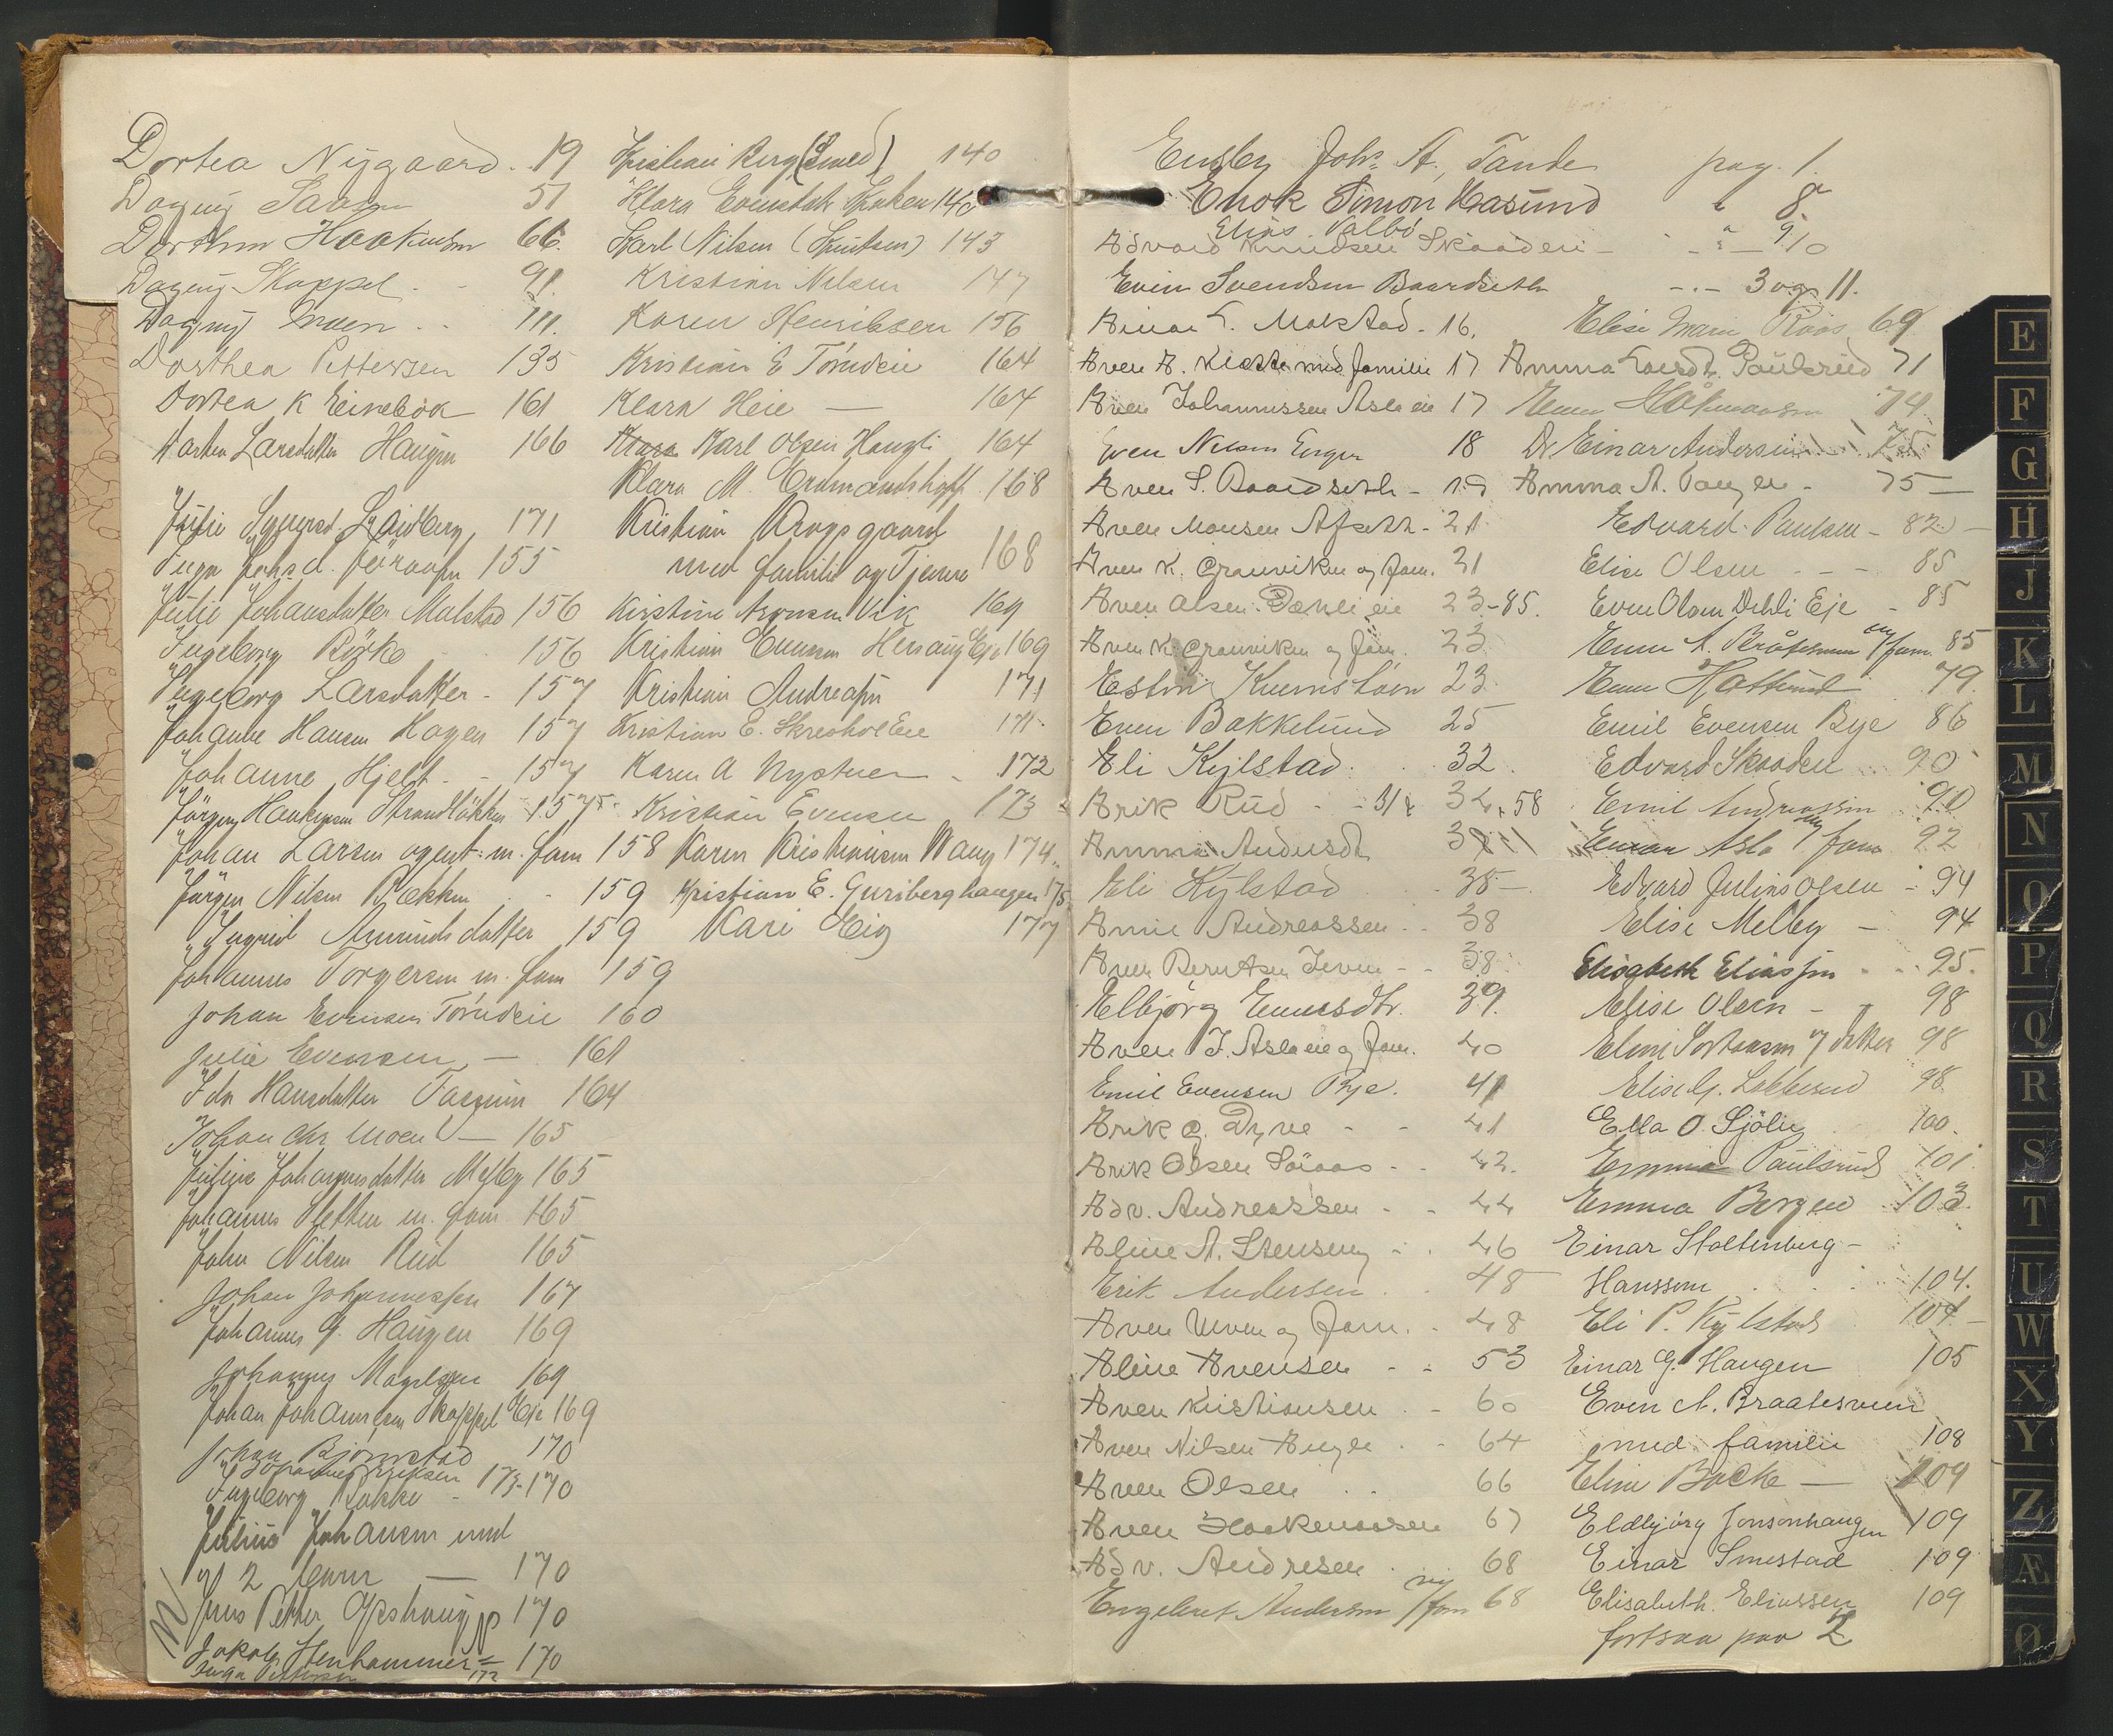 Dortea Nygaard . 19
Dagny 51
Haakensen 66.
Dagny Skappel . - 91.
Dagny Moen . . 111.
Dorthea Pettersen 135
Dortea K Einebok 161
Larsdatter Haugen 166
Julie 171
155
Julie Johansdatter Malstad 156
Ingeborg 156
Ingeborg Larsdatter - 157
Johanne Hansen Hagen 157
Johanne Hjelt . - 157
Jørgen Haakensen Strandløkken 157
Johan Larsen agent m. fam 158
Jørgen Nilsen Bækken - 159
Ingrid Amundsdatter 159
Johannes Torgersen m. fam 159
Johan Evensen Törudeie 160
Julie Evensen — 161
Ida Hansdatter 164
Johan Chr Moen — 165
Johannesdatter Melby 165
Johannes Sletten m. fam 165
John Nilsen Rud 165
Johan Johannessen 167
Johannes G. Haugen 169
Johannes 169
Johan Johannesen Skappel Eje 169
Johan Bjørnstad 170
Johannes Eriksen 173
Ingeborg Bakke - 170
Julius Johansen und
og 2 — 170
Jens Petter 170
Jakob Stenhammer = 170
Inga Pettersen 172
Kristian Berg (Smed) 140
Klara Evenstad 140
Karl Nilsen (Knutsen) 143
Kristian Nilsen 147
Karen Henriksen 156
Kristian E Törudeie 164
Klara Heie — 164
Klara Karl Olsen 164
Klara M. 168
Kristian Krogsgaard
med familie og Tjenere 168
Kirstine Aronsen Vik 169
Kristian Evensen Hersaug Eje 169
Kristian Andreassen 171
Kristian E. Skreshol Eie 171
Karen A Nystuen - 172
Kristian Evensen 173
Karen Kristiansen Wang 174
Kristian E. Guriberghaugen 175
Kari Eig 177
Engby Johs A. Tande pag. 1.
Enok Simon Hasund " 8
Elias Valbø " 9
Edvard Knudsen Skaaden - 10
Even Svendsen Baardseth -.- 3 og 11.
Einar L. Mokstad . 16.
Even A. Kløsta med familie 17
Even Johannessen Asla eie 17
Even Nilsen Enger 18
Even S. Baardseth - 19
Even Monsen Afseth . 21
Even K. Granviken og fam. 21
Even Olsen Dæhli eie 23-85.
Even K. Granviken og fam. 23
23
Even Bakkelund 25
Eli Kylstad . . 32
Erik Rud . - 31 & 34, 58
Emma Andersdt
Eli Kylstad . . 35
Emil Andreassen . . 38
Even Berntsen - . 38.
Elbjørg Evensdtr. 39.
Even J. Asla eie og fam. 40
Emil Evensen Bye. 41
Erik O. Dyve - - 41
Erik Olsen - . 42.
Edv. Andreassen - - 44
Eline A. Stenseng - . 46
Erik Andersen . . 48
Even Moen og fam. . 48
Eline Evensen - - 53
Even Kristiansen . - 60
Even Nilsen . - 64
Even Olsen . . 66
Even Haakenssen 67
Edv. Andresen . 68
Engebret Andersen og fam 68
Elise Marie Roos 69
Emma Larsdt. Paulsrud 71
Even Håkensen 74
Dr Einar Andersen
Emma A. - 75 —
Edvard Paulsen - 82 -
Elise Olsen - - - 85
Even Olsen Dehli Eje - 85
Even A. Bråtesveen og fam. 85
Even Hjattund 79.
Emil Evensen Bye 86
Edvard Skaaden . . 90
Emil Andreassen . 90
Asla og fam 92
Edvard Julius Olsen - 94
Elise Melby — 94
Elisabeth Eliassen . . 95.
Elise Olsen - „ 98
Eline og datter 98
Elise G. 98
Ella O. Sjølie 100.
Emma Paulsrud 101
Emma Bergen 103.
Einar Stoltenberg -
Hanssen . . . 104.
Eli P. Kylstad 104 -
Einar G. Haugen 105
Even A. Braatesveen
med familie 108
Eline Bache — 109
Eldbjørg Jonsonhaugen 109
Einar Smestad 109
Elisabeth Eliassen 109
fortsaa paa 2
E
F
G
H
J
K
L
M
N
O
P
Q
R
S
T
U
W
X
Y
Z
Æ
Ø